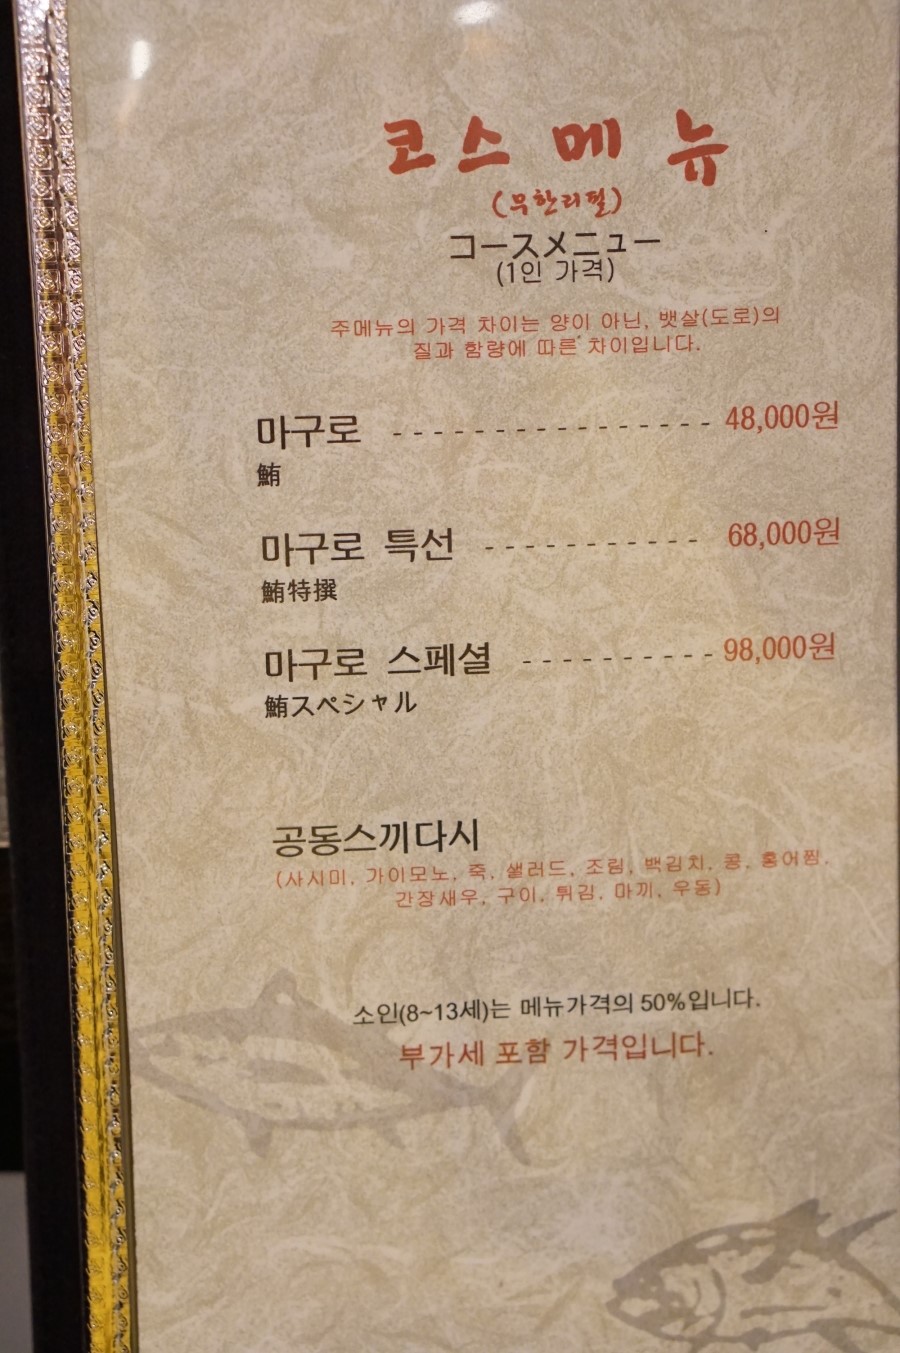 코스 메뉴
(무한리필)
コースメニュー
(1인 가격)
주메뉴의 가격 차이는 양이 아닌, 뱃살(도로)의
질과 함량에 따른 차이입니다.
마구로 - - - - - - - - - - - - - - - - 48,000원
鮪
마구로 특선 - - - - - - - - - - - 68,000원
鮪特撰
마구로 스페셜 - - - - - - - - - - 98,000원
鮪スペシャル
공동스끼다시
(사시미, 가이모노, 죽, 샐러드, 조림, 백김치, 콩, 홍어찜,
간장새우, 구이, 튀김, 마끼, 우동)
소인(8~13세)는 메뉴가격의 50%입니다.
부가세 포함 가격입니다.